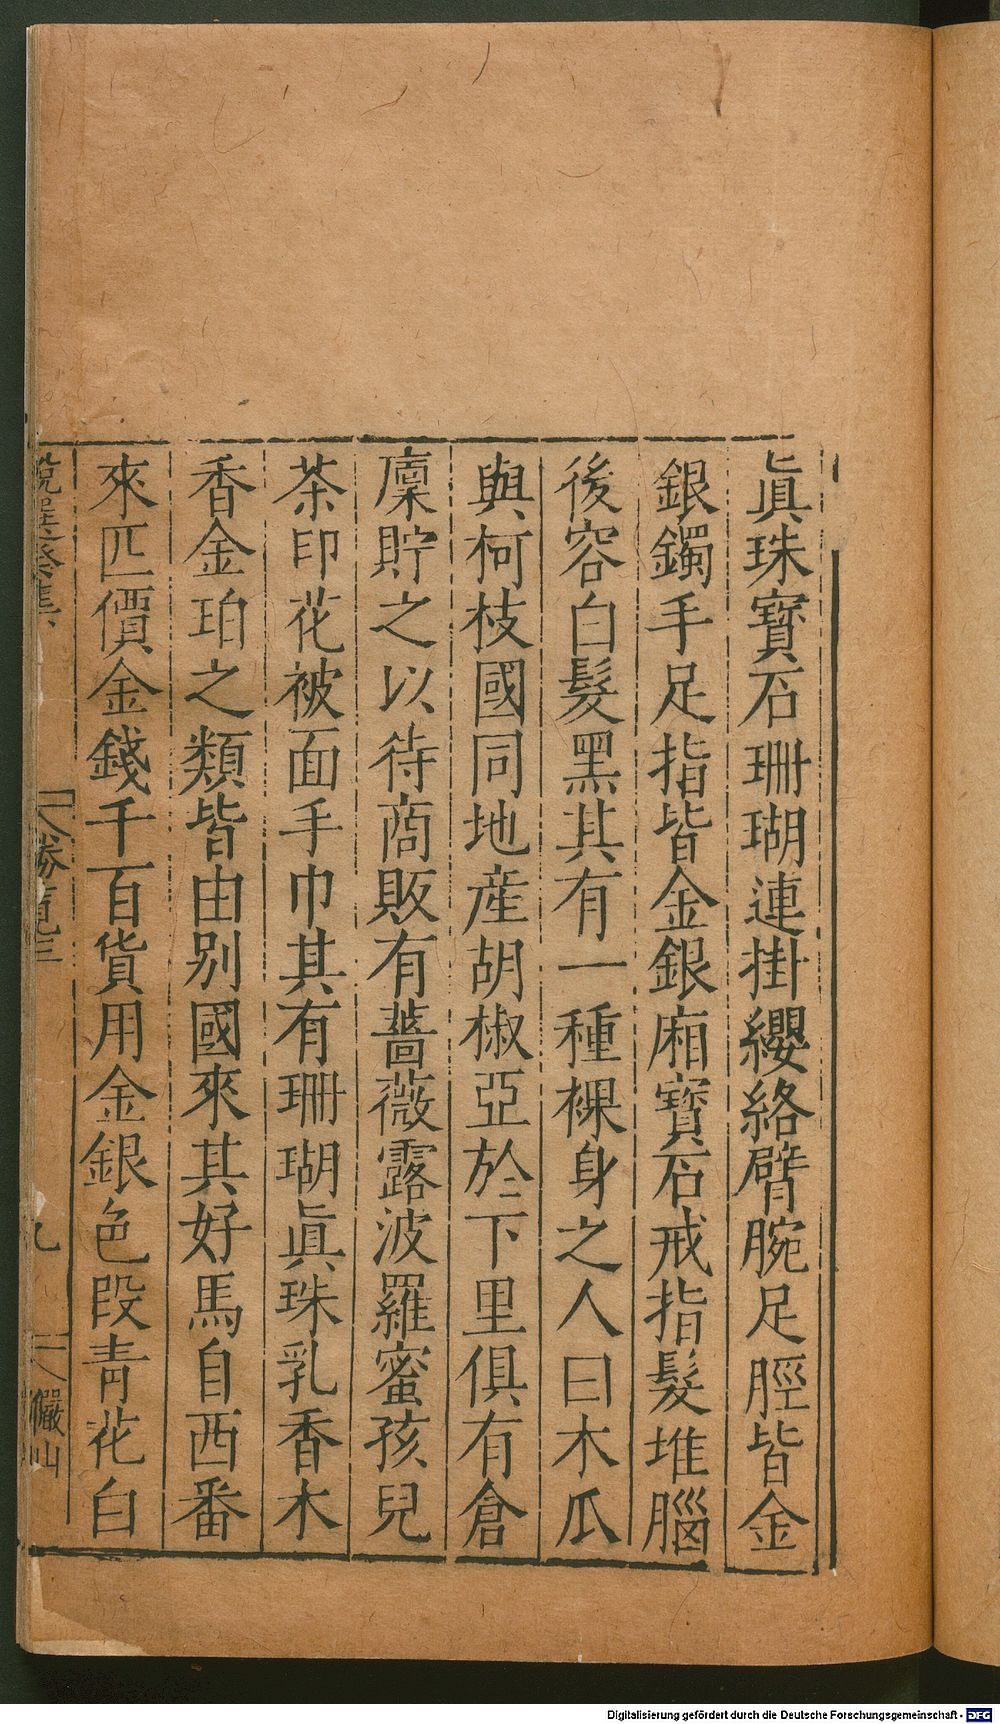 眞珠寶石珊瑚連掛纓絡臂腕足脛皆金
銀鐲手足指皆金銀廂寶石戒指髮堆腦
後容白髮黑其有一種裸身之人曰木瓜
與柯枝國同地産胡椒亞於下里俱有倉
廩貯之以待商販有薔薇露波羅蜜孩兒
茶印花被面手巾其有珊瑚眞珠乳香木
香金珀之類皆由別國來其好馬自西番
來匹價金錢千百貨用金銀色段青花白
說選癸集
勝覽三
九
儼山
Digitalisierung gefördert durch die Deutsche Forschungsgemeinschaft - DFG